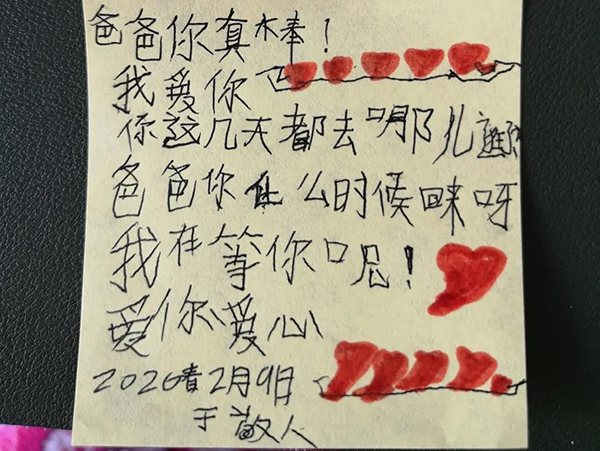 爸爸你真棒!
我爱你
你这几天都去哪儿
爸爸你什么时候回来呀
我在等你呢!
爱你爱心
2026春2月9日
于敬人